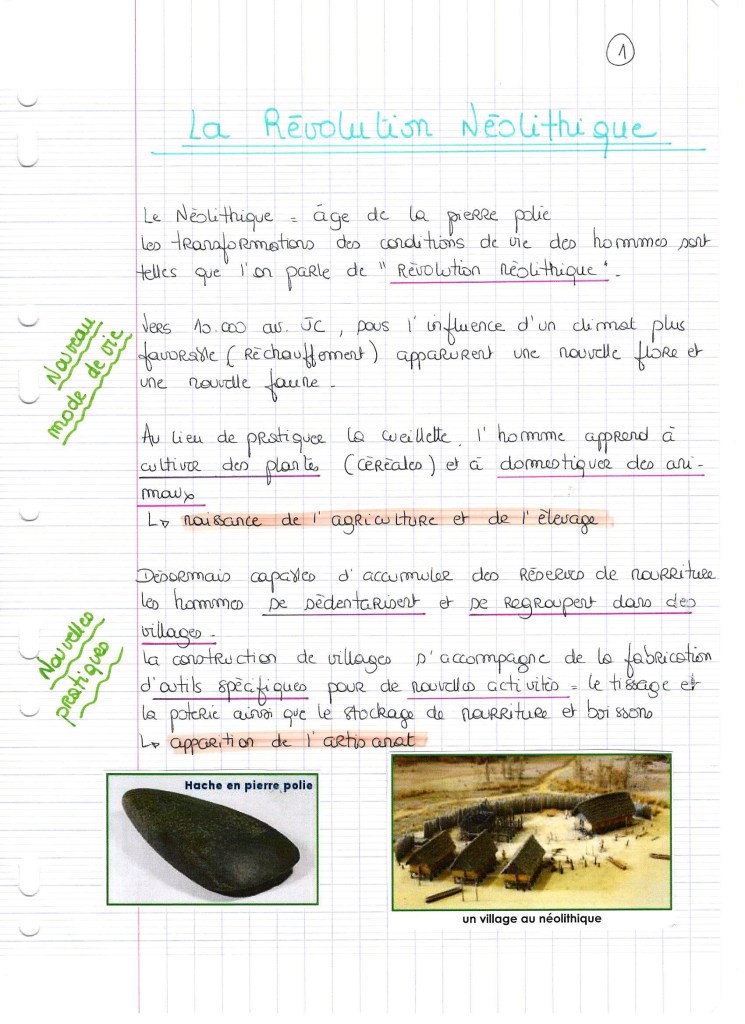 1
La Révolution Néolithique
Le Néolithique = âge de la pierre polie
Les transformations des conditions de vie des hommes sont
telles que l'on parle de "Révolution néolithique".
Nouveau
mode de vie
Vers 10.000 av. JC, sous l'influence d'un climat plus
favorable (Réchauffement) apparurent une nouvelle flore et
une nouvelle faune.
Au lieu de pratiquer la cueillette, l'homme apprend à
cultiver des plantes (céréales) et à domestiquer des ani-
maux
↳ naissance de l'agriculture et de l'élevage
Nouvelles
pratiques
Désormais capables d'accumuler des réserves de nourriture
les hommes se sédentarisent et se regroupent dans des
villages.
La construction de villages s'accompagne de la fabrication
d'outils spécifiques pour de nouvelles activités = le tissage et
la poterie ainsi que le stockage de nourriture et boissons
↳ apparition de l'artisanat
Hache en pierre polie
un village au néolithique